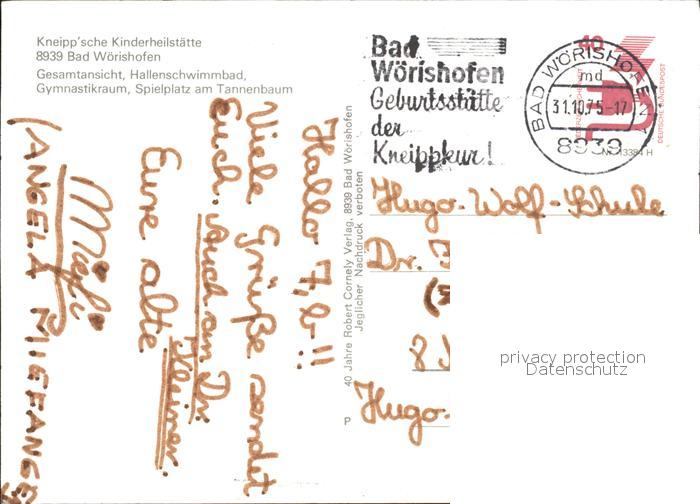 Kneipp'sche Kinderheilstätte
8939 Bad Wörishofen
Gesamtansicht, Hallenschwimmbad,
Gymnastikraum, Spielplatz am Tannenbaum
Bad
Wörishofen
Geburtsstätte
der
Kneippkur!
40
DEUTSCHE BUNDESPOST
BAD WÖRISHOFEN 2
md
31.10.75-17
8939
Hallo 7,b!!
Viele Grüße sendet
Euch. auch an Dr.
Kleiner
Eure alte
(ANGELA
40 Jahre Robert Cornely Verlag, 8939 Bad Wörishofen
Jeglicher Nachdruck verboten
P
Hugo-Wolf-Schule
Dr.
8
Hugo-
privacy protection
Datenschutz